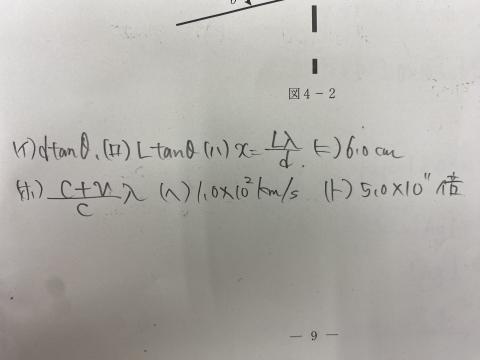 θ
図4-2
(イ) d tanθ. (ロ) L tanθ (ハ) x = Lλ/d. (ニ) 6.0 cm
(ホ) (c+v)/c λ (ヘ) 1.0×10² km/s (ト) 5.0×10¹¹ 倍
— 9 —